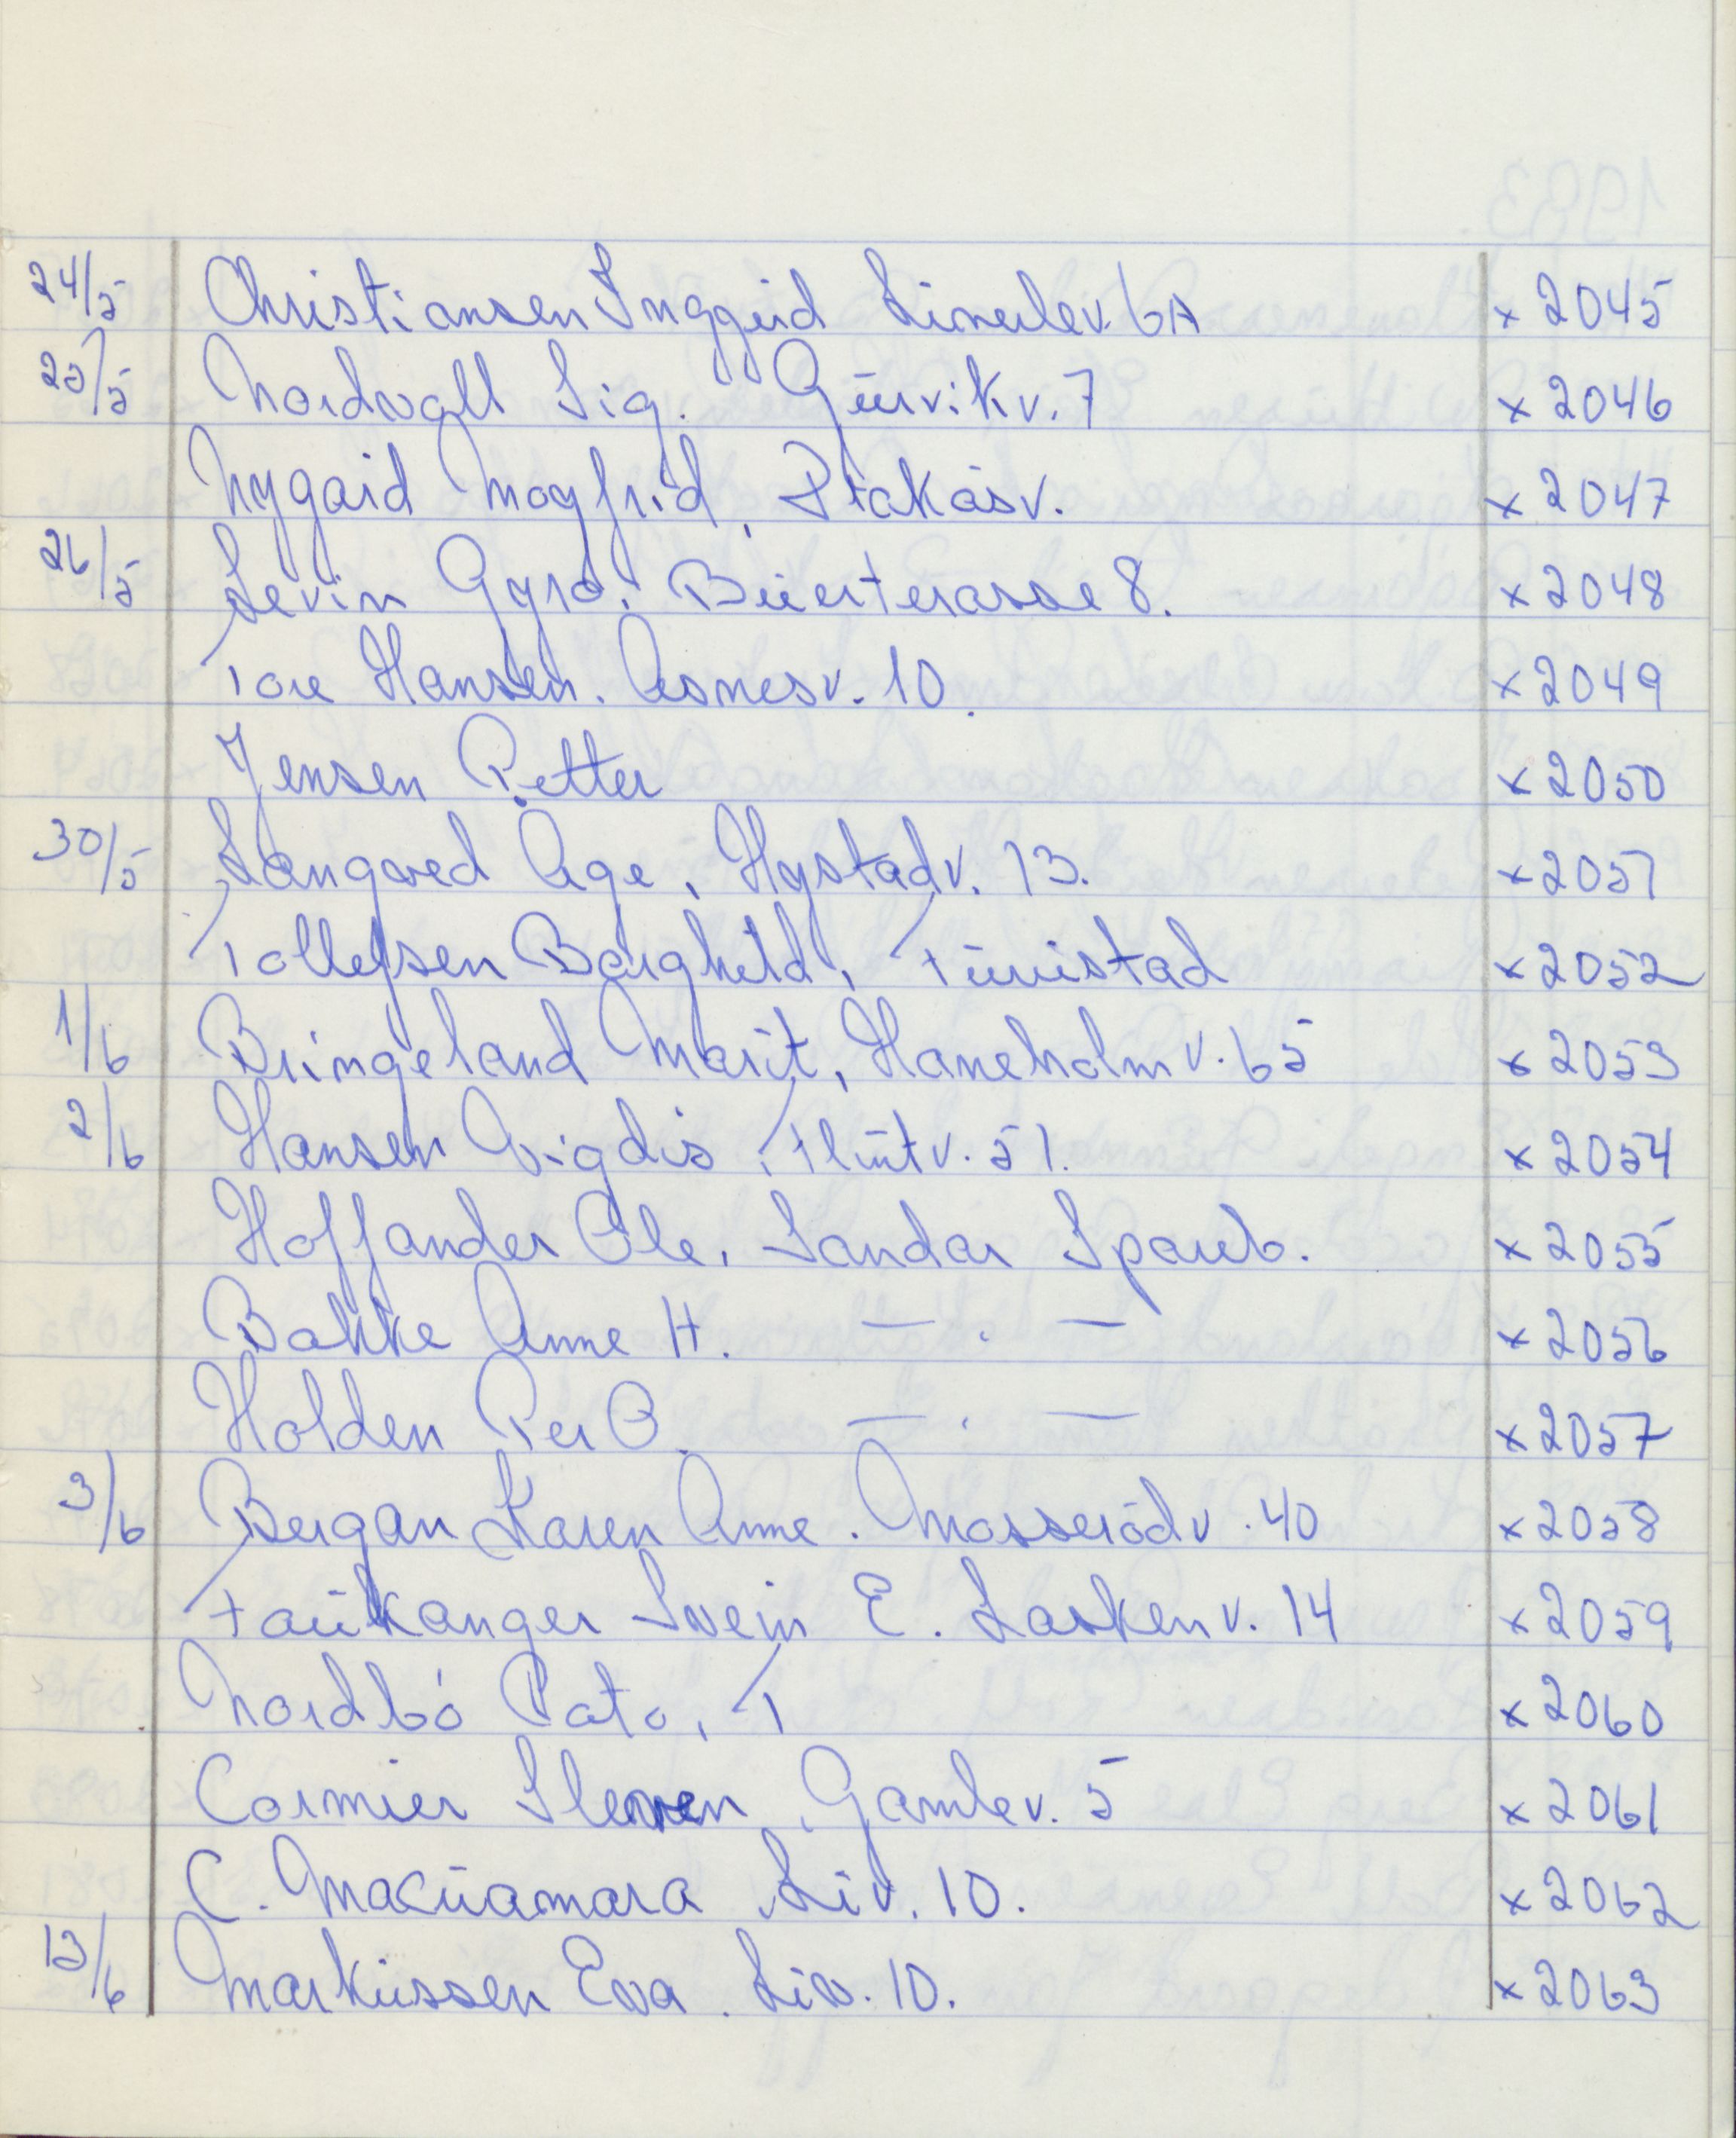 24/5 Christiansen Inggjerd Linerlev. 6A x 2045
25/5 Nordvall Sig. Gurvikv. 7 x 2046
Nygård Moyfrid, Peråsv. x 2047
26/5 Levin Gyro. Bueterasse 8. x 2048
Tore Hansen. Asnesv. 10. x 2049
Jensen Petter x 2050
30/5 Langved Åge, Hystadv. 13. x 2051
Tollefsen Borghild, Furustad x 2052
1/6 Bringeland Marit, Haneholmv. 65 x 2053
2/6 Hansen Vigdis, Flintv. 51. x 2054
Hoffander Ole, Sandar Spareb. x 2055
Bakke Anne H. — . — x 2056
Holden Per O. — . — x 2057
3/6 Bergan Karen Anne. Mosserødv. 40 x 2058
Faukanger Svein E. Laskenv. 14 x 2059
Nordbø Pato, T x 2060
Cormier Steven, Gamlev. 5 x 2061
C. Macnamara Liv. 10. x 2062
13/6 Markussen Eva. Liv. 10. x 2063